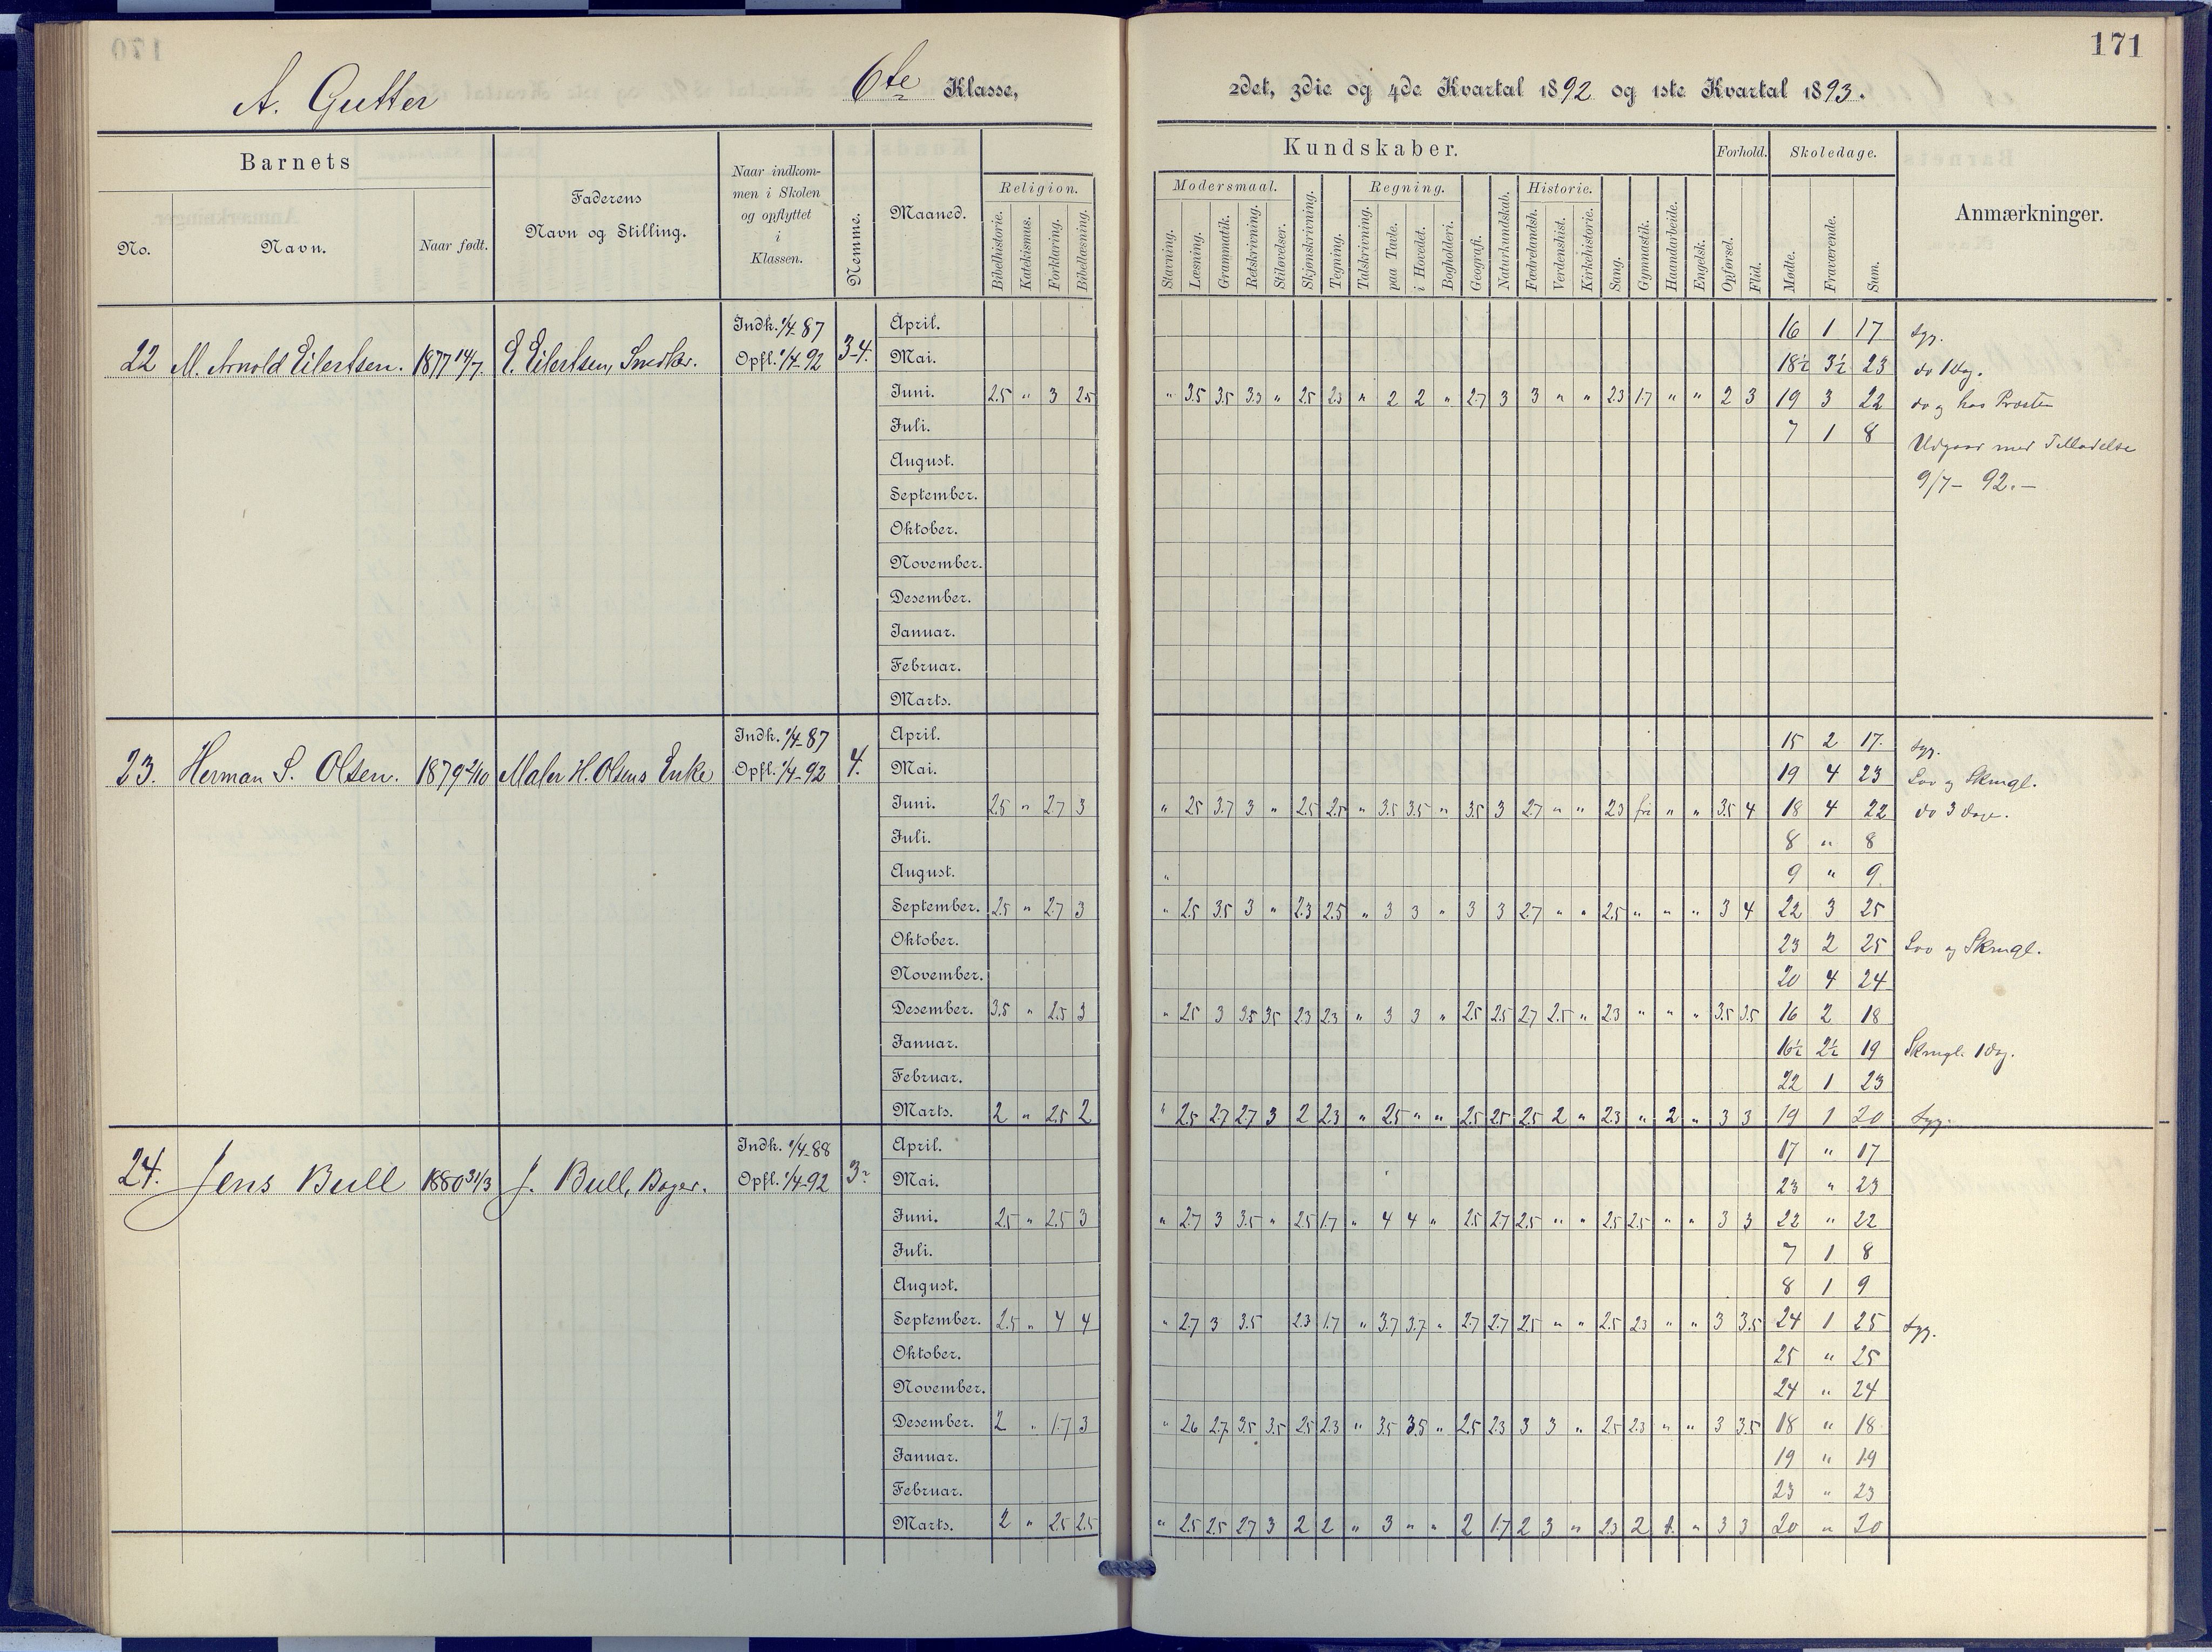 171
A. Gutter 6te Klasse, 2det, 3die og 4de Kvartal 1892 og 1ste Kvartal 1893.
Barnets
No.
Navn.
Naar født.
Faderens
Navn og Stilling.
Naar indkom-
men i Skolen
og opflyttet
i
Klassen.
Nemme.
Maaned.
Kundskaber.
Religion.
Bibelhistorie. Katekismus. Forklaring. Bibellæsning.
Modersmaal.
Stavning. Læsning. Grammatik. Retskrivning. Stiløvelser.
Skjønskrivning. Tegning.
Regning.
Talskrivning. paa Tavle. i Hovedet. Bogholderi.
Geografi. Naturkundskab.
Historie.
Fædrelandsh. Verdenshist. Kirkehistorie.
Sang. Gymnastik. Haandarbeide. Engelsk.
Forhold.
Opførsel. Flid.
Skoledage.
Mødte. Fraværende. Sum.
Anmærkninger.
22 M. Arnold Eilertsen. 1877 14/7. E. Eilertsen, Snedker. Indk. 1/4-87
Opfl. 1/4-92 3-4.
April. 16 1 17 syg.
Mai. 18½ 3½ 23 do 1 Dg.
Juni. 2.5 " 3 2.5 " 3.5 3.5 3.3 " 2.5 2.3 " 2 2 " 2.7 3 3 " " 2.3 1.7 " " 2 3 19 3 22 do og hos Prosten
Juli. 7 1 8 Udgaar med Tilladelse
August. 9/7- 92.-
September.
Oktober.
November.
Desember.
Januar.
Februar.
Marts.
23. Herman S. Olsen. 1879 2/10 Maler H. Olsens Enke Indk. 1/4-87
Opfl. 1/4-92 4.
April. 15 2 17. syg.
Mai. 19 4 23 Lov og Skmgl.
Juni. 2.5 " 2.7 3 " 2.5 3.7 3 " 2.5 2.5 " 3.5 3.5 " 3.5 3 2.7 " " 2.3 fri " " 3.5 4 18 4 22 do 3 dage.
Juli. 8 " 8
August. " 9 " 9
September. 2.5 " 2.7 3 " 2.5 3.5 3 " 2.3 2.5 " 3 3 " 3 3 2.7 " " 2.5 " " " 3 4 22 3 25
Oktober. 23 2 25 Lov og Skmgl.
November. 20 4 24
Desember. 3.5 " 2.5 3 " 2.5 3 3.5 3.5 2.3 2.3 " 3 3 " 2.5 2.5 2.7 2.5 " 2.3 " " " 3.5 3.5 16 2 18
Januar. 16½ 2½ 19 Skmgl. 1 Dg.
Februar. 22 1 23
Marts. 2 " 2.5 2 " 2.5 2.7 2.7 3 2 2.3 " 2.5 " " 2.5 2.5 2.5 2 " 2.3 " 2 " 3 3 19 1 20 syg.
24. Jens Bull 1880 31/3 J. Bull, Bager. Indk. 1/4-88
Opfl. 1/4-92 3
April. 17 " 17
Mai. 23 " 23
Juni. 2.5 " 2.5 3 " 2.7 3 3.5 " 2.5 1.7 " 4 4 " 2.5 2.7 2.5 " " 2.5 2.5 " " 3 3 22 " 22
Juli. 7 1 8
August. 8 1 9
September. 2.5 " 4 4 " 2.7 3 3.5 2.3 1.7 " 3.7 3.7 " 2.7 2.7 2.5 " " 2.5 2.3 " " 3 3.5 24 1 25 syg.
Oktober. 25 " 25
November. 24 " 24
Desember. 2 " 1.7 3 " 2.6 2.7 3.5 3.5 2.5 2.3 " 3.5 3.5 " 2.5 2.3 3 3 " 2.5 2.3 " " 3 3.5 18 " 18
Januar. 19 " 19
Februar. 23 " 23
Marts. 2 " 2.5 2.5 " 2.5 2.5 2.7 3 2 2 " 3 " " 2 1.7 2 3 " 2.3 2 " 3 3 20 " 20